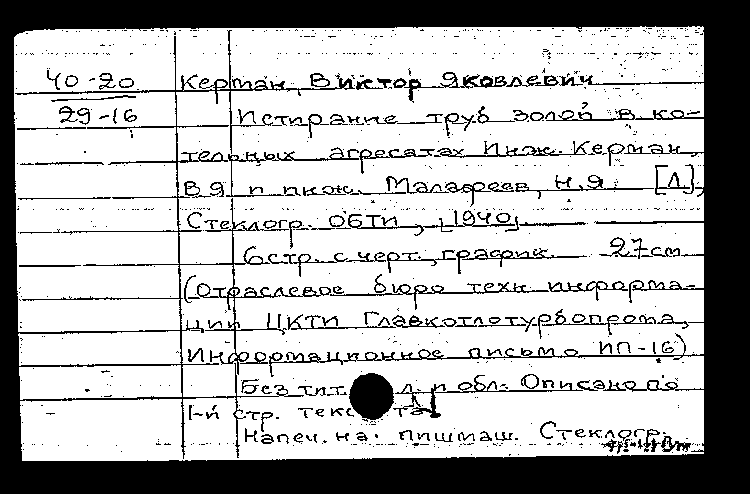 40-20
29-16
Керман, Виктор Яковлевич
Истирание труб золой в ко-
тельных агресатах Инж. Керман,
В Я и инж. Малафеев, Н.Я. [Л],
Стеклогр. ОБТИ, [1940].
6 стр. с черт., график. 27 см
(Отраслевое бюро техн информа-
ции ЦКТИ Главкотлотурбопрома,
Информационное письмо ИП-16)
Без тит. л. и обл. Описано по
1-й стр. текста
Напеч. на. пишмаш. Стеклогр.